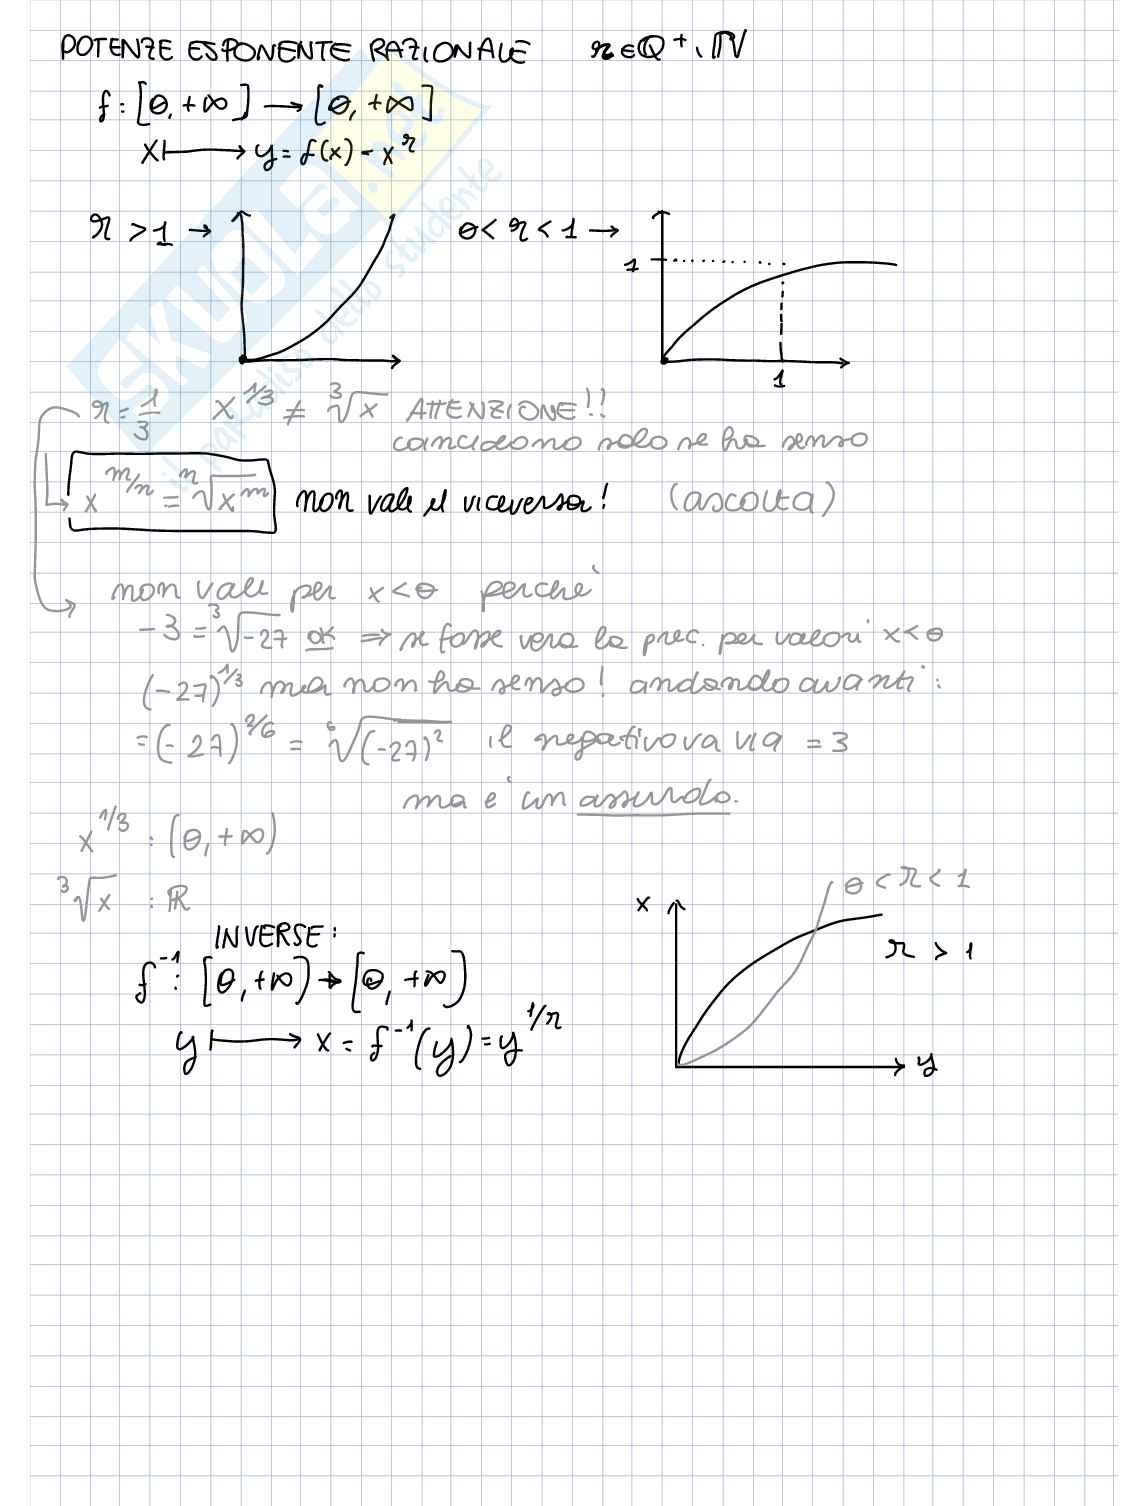 POTENZE ESPONENTE RAZIONALE r∈ℚ⁺∖ℕ
f: [0, +∞] → [0, +∞]
x ↦ y = f(x) - xʳ
r > 1 → 0 < r < 1 →
1
1
r = 1/3 x^1/3 ≠ ³√x ATTENZIONE!!
coincidono solo se ha senso
x^m/n = ⁿ√x^m non vale il viceversa! (ascolta)
non vale per x<0 perchè
-3 = ³√-27 ok ⇒ se fosse vera la prec. per valori x<0
(-27)^1/3 ma non ha senso! andando avanti:
= (-27)^2/6 = ⁶√(-27)² il negativo va via = 3
ma è un assurdo.
x^1/3 : (0, +∞)
³√x : ℝ
0 < r < 1
x
r > 1
y
INVERSE:
f⁻¹: [0, +∞) → [0, +∞)
y ↦ x = f⁻¹(y) = y^1/r
SKUOLA.net
il paradiso dello studente